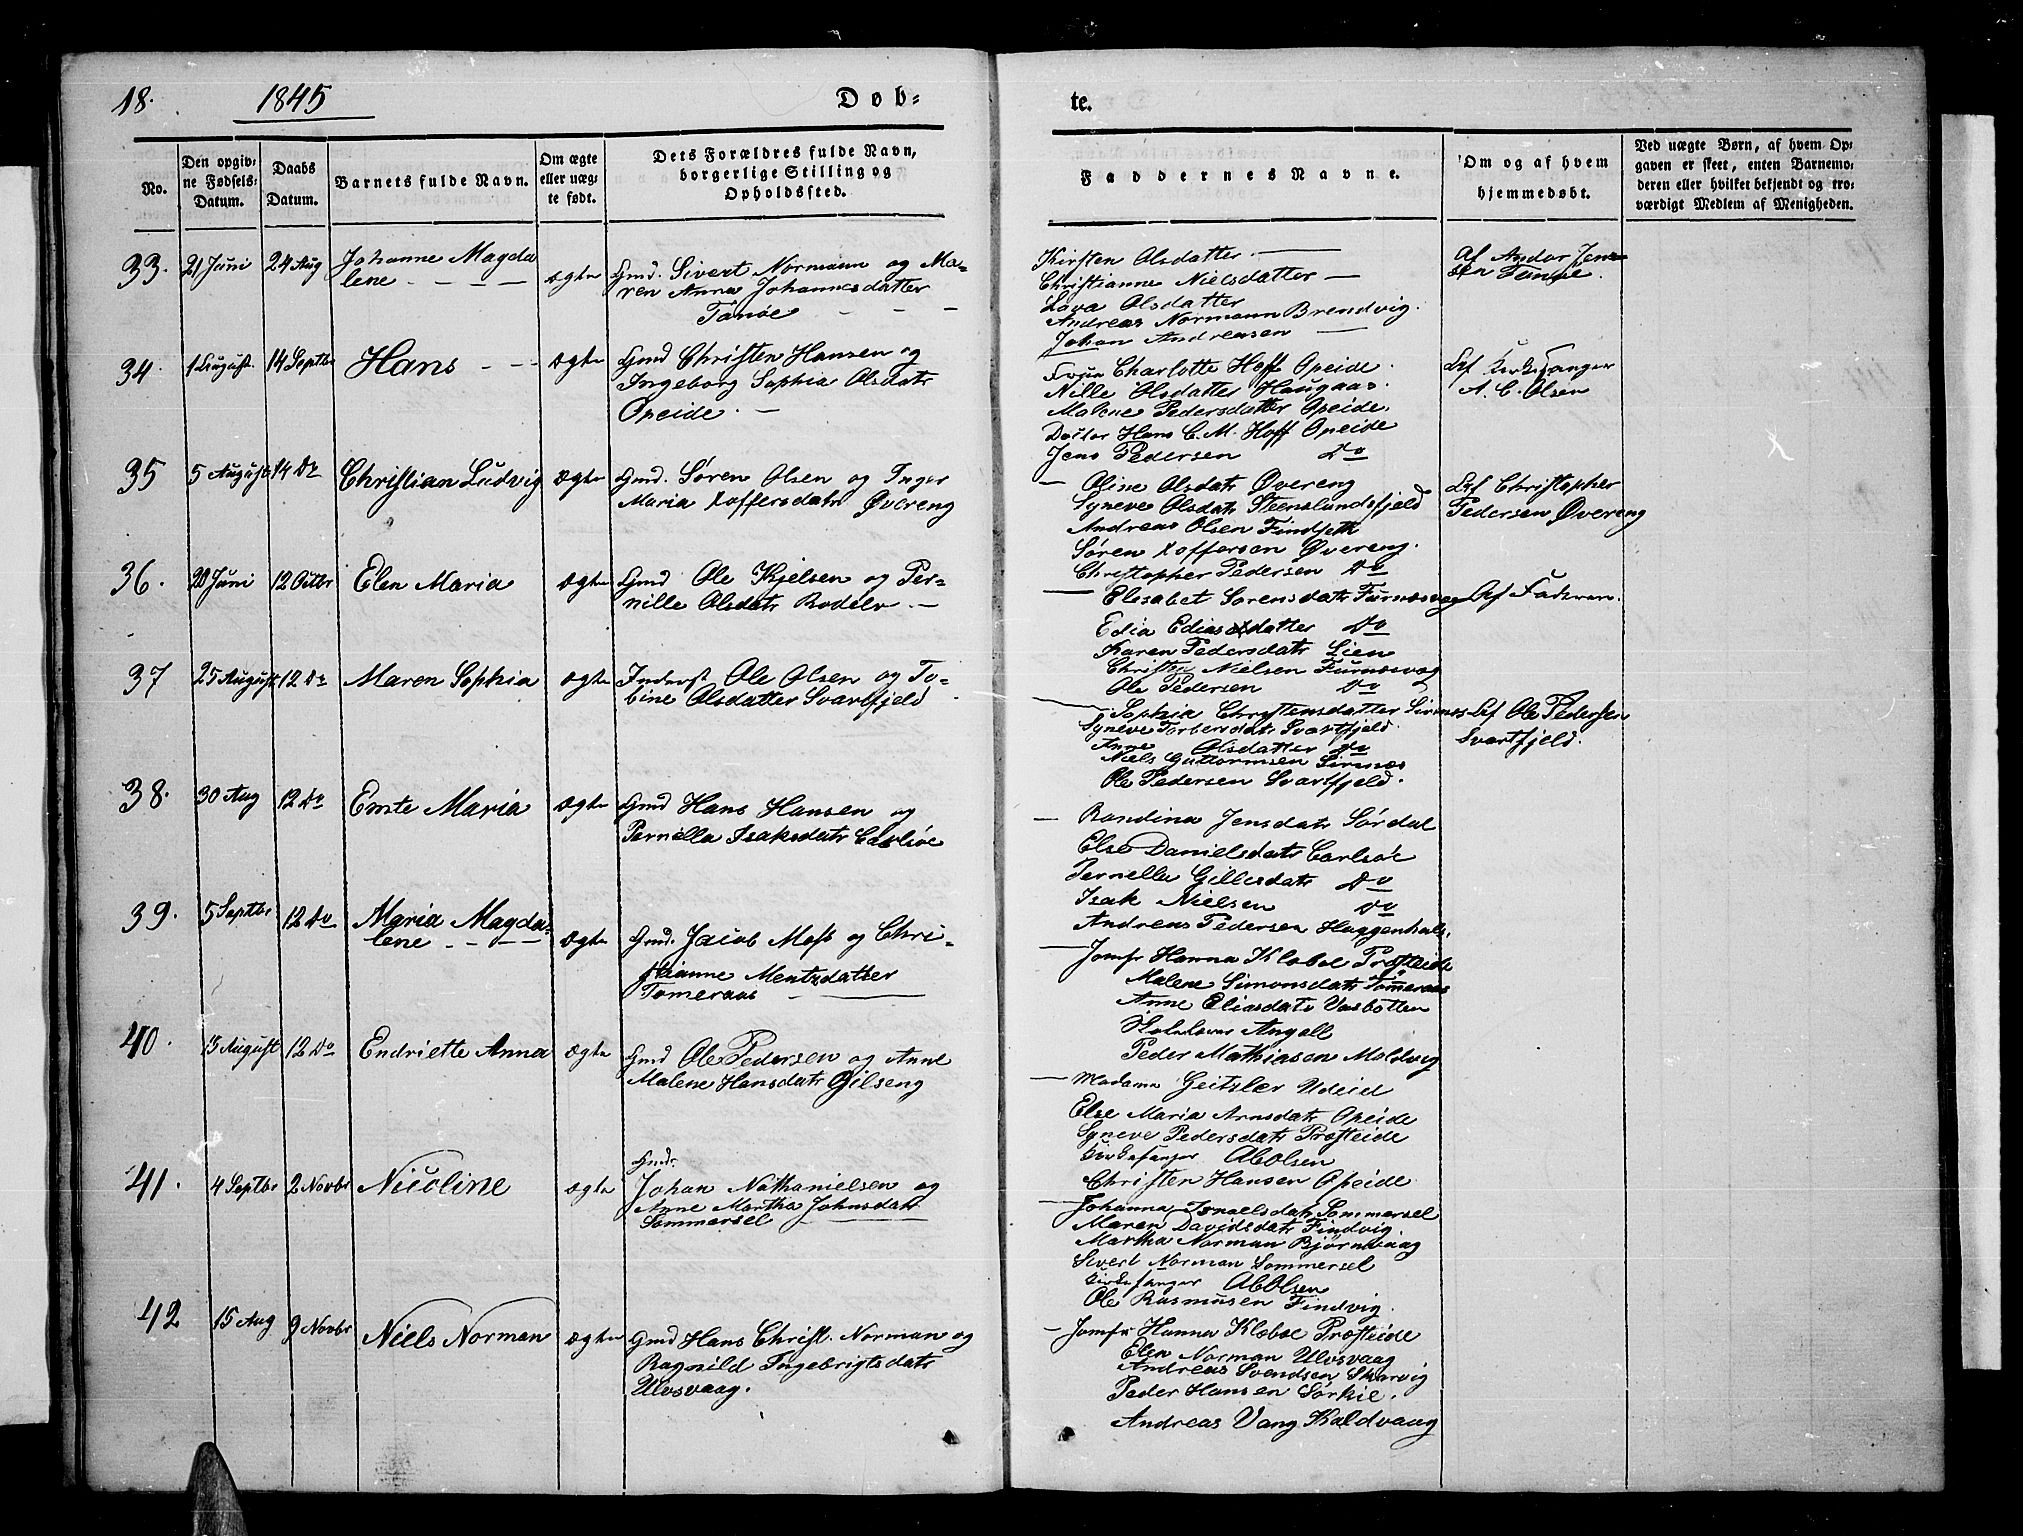 18. 1845 Døb-
te.
No.
Den opgiv-
ne Fødsels-
Datum.
Daabs
Datum.
Barnets fulde Navn.
Om ægte
eller uæg-
te født.
Dets Forældres fulde Navn,
borgerlige Stilling og
Opholdssted.
Faddernes Navne.
Om og af hvem
hjemmedøbt.
Ved uægte Børn, af hvem Op-
gaven er skeet, enten Barnemo-
deren eller hvilket bekjendt og tro-
værdigt Medlem af Menigheden.
33. 21 Juni 24 Aug Johanne Magda
lene
ægte
Gmd. Sivert Normann og Ma-
ren Anna Johannesdatter
Tanøe
Kirsten Olsdatter
Christianne Nielsdatter
Lava Olsdatter
Andreas Normann Brendvig.
Johan Andreasen
Af Andor Jen-
sen
34. 1 August. 14 Septbr Hans ægte
Gmd Christen Hansen og
Ingeborg Sophia Olsdatr
Opeide.
Frue Charlotte Hoff Opeide.
Nille Olsdatter Haugaas.
Malene Pedersdatter Opeide.
Doctor Hans C. M. Hoff Opeide
Jens Pedersen Do
Af Kirkesanger
A. C. Olsen
35 5 August 14 Do Christian Ludvig ægte
Gmd. Søren Olsen og Inger
Maria Xoffersdatr Øvereng
Oline Olsdatr Øvereng
Syneve Olsdatr Steenslundsfjeld
Andreas Olsen Findseth
Søren Xoffersen Øvereng.
Christopher Pedersen Do
Af Christopher
Pedersen Øvereng
36. 20 Juni 12 Octbr Elen Maria ægte
Gmd Ole Kjelsen og Per-
nille Olsdatr Rodelv.
Elisabet Sorensdatr Furnæsvag
Edia Ediasdatter Do
Karen Pedersdatr Lien
Christen Nielsen Furnæsvag
Ole Pedersen Do
Af Faderen.
37 25 August 12 Do Maren Sophia ægte
Inderst Ole Olsen og To-
bine Olsdatter Svartfjeld
Sophia Christensdatter Sirnæs
Syneve Torbersdatr Svartfjeld.
Anne Olsdatter Do
Niels Guttormsen Sirnæs
Ole Pedersen Svartfjeld.
Af Ole Pedersen
Svartfjeld.
38. 30 Aug 12 Do Emte Maria ægte
Gmd Hans Hansen og
Pernella Isaksdatr Carlsøe
Randina Jensdatr Sørdal
Else Danielsdatr Carlsøe
Pernella Gillesdatr Do
Isak Nielsen Do
Andreas Pedersen Haggenhals.
39. 5 Septbr 12 Do Maria Magda-
lene
ægte
Gmd. Jacob Mese og Chri-
stianne Mentzdatter
Tømeraas
Jomfr Hanna Klæboe Præsteide
Malene Simonsdatr Tømeraas
Anne Eliasdatr Vasbotten
Skolelærer Angell
Peder Mathiasen Moldvig
40. 13 August 12 Do Endriette Anna ægte
Gmd Ole Pedersen og Anne
Malene Hansdatr Gilseng
Madame Geitzler Udeid
Else Maria Arnsdatr Opeide
Syneve Pedersdatr Præsteide
Kirkesanger ACOlsen
Christen Hansen Opeide
41. 4 Septbr 2 Novbr Nicoline ægte
Gmd.
Johan Nathanielsen og
Anne Martha Johnsdatr
Sommersel
Johanna Israelsdatr Sommersel
Maren Davidsdatr Findvig.
Martha Norman Bjørnvaag
Sivert Norman Sommersel
Kirkesanger ACOlsen
Ole Rasmusen Findvig.
42 15 Aug 9 Novbr Niels Norman ægte
Gmd Hans Christ. Norman og
Ragnild Ingebrigtsdatr
Ulvsvaag.
Jomfr Hanna Klæboe Præsteide
Elen Norman Ulvsvaag
Andreas Svendsen Skarvig
Peder Hansen Sørkie.
Andreas Vang Kaldvaag